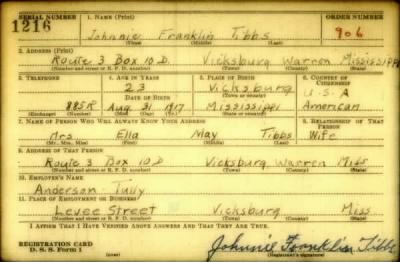 SERIAL NUMBER 1. NAME (Print) ORDER NUMBER
1216 Johnnie Franklin Tibbs 906
(First) (Middle) (Last)
2. ADDRESS (Print)
Route 3 Box 10 D. Vicksburg Warren Mississippi
(Number and street or R. F. D. number) (Town) (County) (State)
3. TELEPHONE 4. AGE IN YEARS 5. PLACE OF BIRTH 6. COUNTRY OF CITIZENSHIP
23 Vicksburg U.S.A
DATE OF BIRTH (Town or county)
885R Aug 31 1917 Mississippi American
(Exchange) (Number) (Mo.) (Day) (Yr.) (State or country)
7. NAME OF PERSON WHO WILL ALWAYS KNOW YOUR ADDRESS 8. RELATIONSHIP OF THAT PERSON
Mrs Ella May Tibbs Wife
(Mr., Mrs., Miss) (First) (Middle) (Last)
9. ADDRESS OF THAT PERSON
Route 3 Box 10 D Vicksburg Warren Miss
(Number and street or R. F. D. number) (Town) (County) (State)
10. EMPLOYER'S NAME
Anderson - Tully
11. PLACE OF EMPLOYMENT OR BUSINESS
Levee Street Vicksburg Miss
(Number and street or R. F. D. number) (Town) (County) (State)
I AFFIRM THAT I HAVE VERIFIED ABOVE ANSWERS AND THAT THEY ARE TRUE.
REGISTRATION CARD
D. S. S. Form 1 Johnnie Franklin Tibbs
(over) (Registrant's signature)